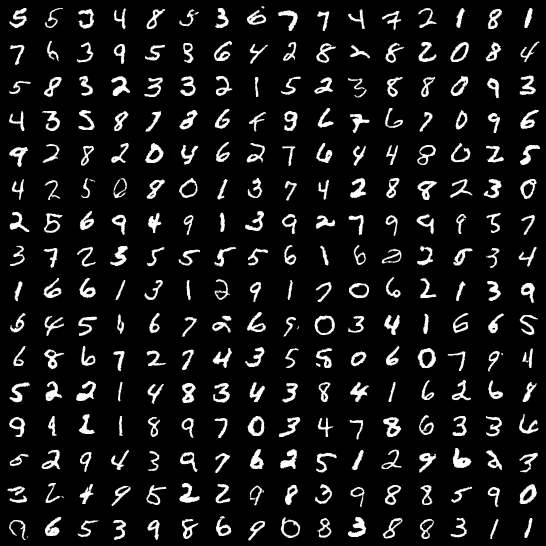 5 5 3 4 8 5 3 6 7 7 4 7 2 1 8 1
7 6 3 9 5 8 6 4 2 8 2 8 2 0 8 4
5 8 3 2 3 3 2 1 5 2 3 8 8 0 9 3
4 3 5 8 7 8 6 4 9 6 7 6 7 0 9 6
9 2 8 2 0 4 6 2 7 6 4 4 8 0 2 5
4 2 5 0 8 0 1 3 7 4 2 8 8 2 3 0
2 5 6 9 4 9 1 3 9 2 7 9 9 9 5 7
3 7 2 3 5 5 5 5 6 1 6 0 2 5 3 4
1 6 6 1 3 1 2 9 1 7 0 6 2 1 3 9
6 4 5 6 6 7 2 6 9 0 3 4 1 6 6 5
6 8 6 7 2 7 4 3 5 5 0 6 0 7 9 4
5 2 2 1 4 8 3 4 3 8 4 1 6 2 6 8
9 1 1 1 8 9 7 0 3 4 7 8 6 3 3 6
5 2 9 4 3 9 7 6 2 5 1 2 9 6 2 3
3 2 4 9 5 2 2 9 8 3 9 8 8 5 9 0
6 5 3 9 8 6 9 0 8 3 8 8 3 1 1